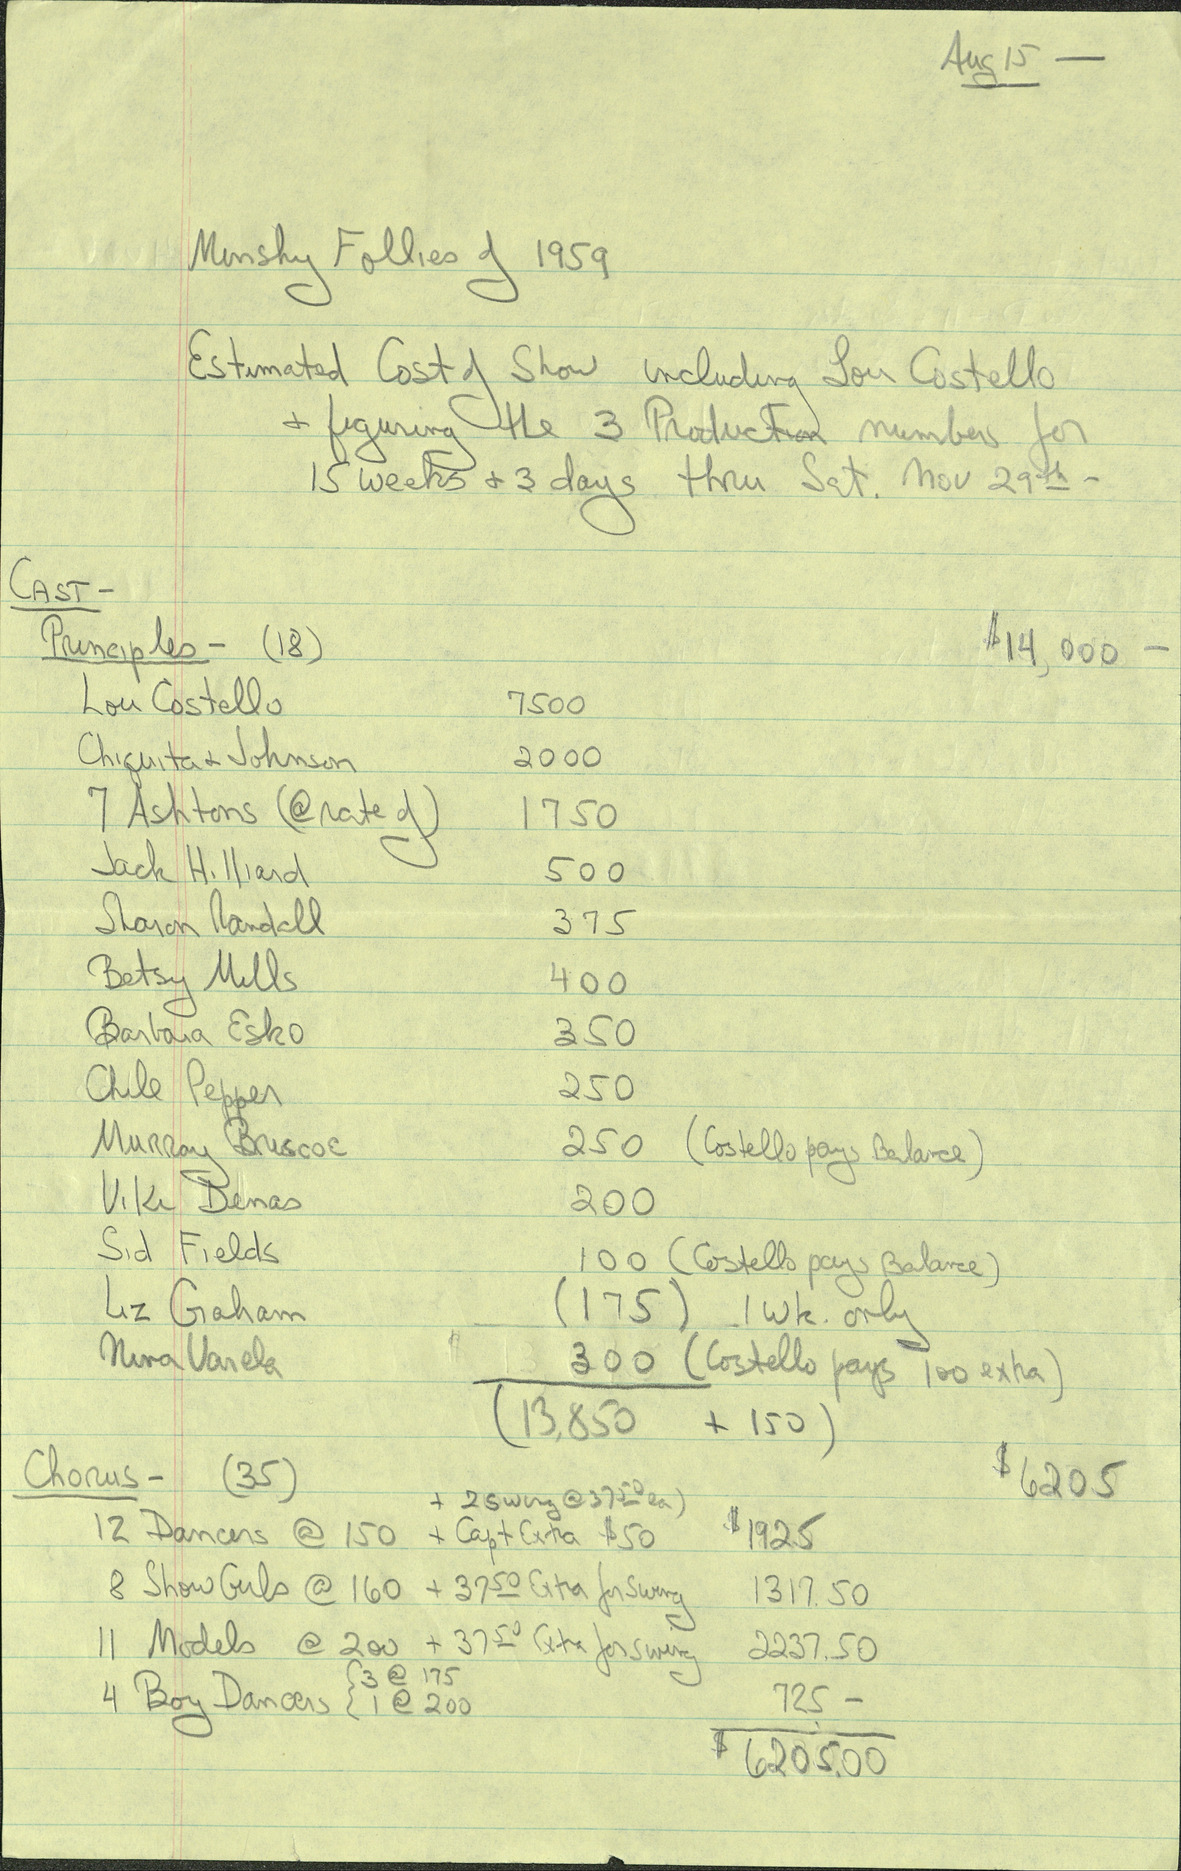 Aug 15 —
Minsky Follies of 1959
Estimated Cost of Show including Lou Costello
+ figuring the 3 Production numbers for
15 weeks + 3 days thru Sat. Nov 29th -
CAST -
Principles - (18) $14,000 —
Lou Costello 7500
Chiquita + Johnson 2000
7 Ashtons (@ rate of) 1750
Jack Hilliard 500
Sharon Randall 375
Betsy Mills 400
Barbara Esko 350
Chile Pepper 250
Murray Bruscoe 250 (Costello pays Balance)
Viki Denas 200
Sid Fields 100 (Costello pays Balance)
Liz Graham (175) 1 wk. only
Nina Varela 300 (Costello pays 100 extra)
(13,850 + 150)
Chorus - (35) $6205
+ 2 swing @ 37.50 ea)
12 Dancers @ 150 + Capt Extra $50 $1925
8 Show Girls @ 160 + 37.50 Extra for swing 1317.50
11 Models @ 200 + 37.50 Extra for swing 2237.50
4 Boy Dancers { 3 @ 175
1 @ 200 725 -
$6205.00